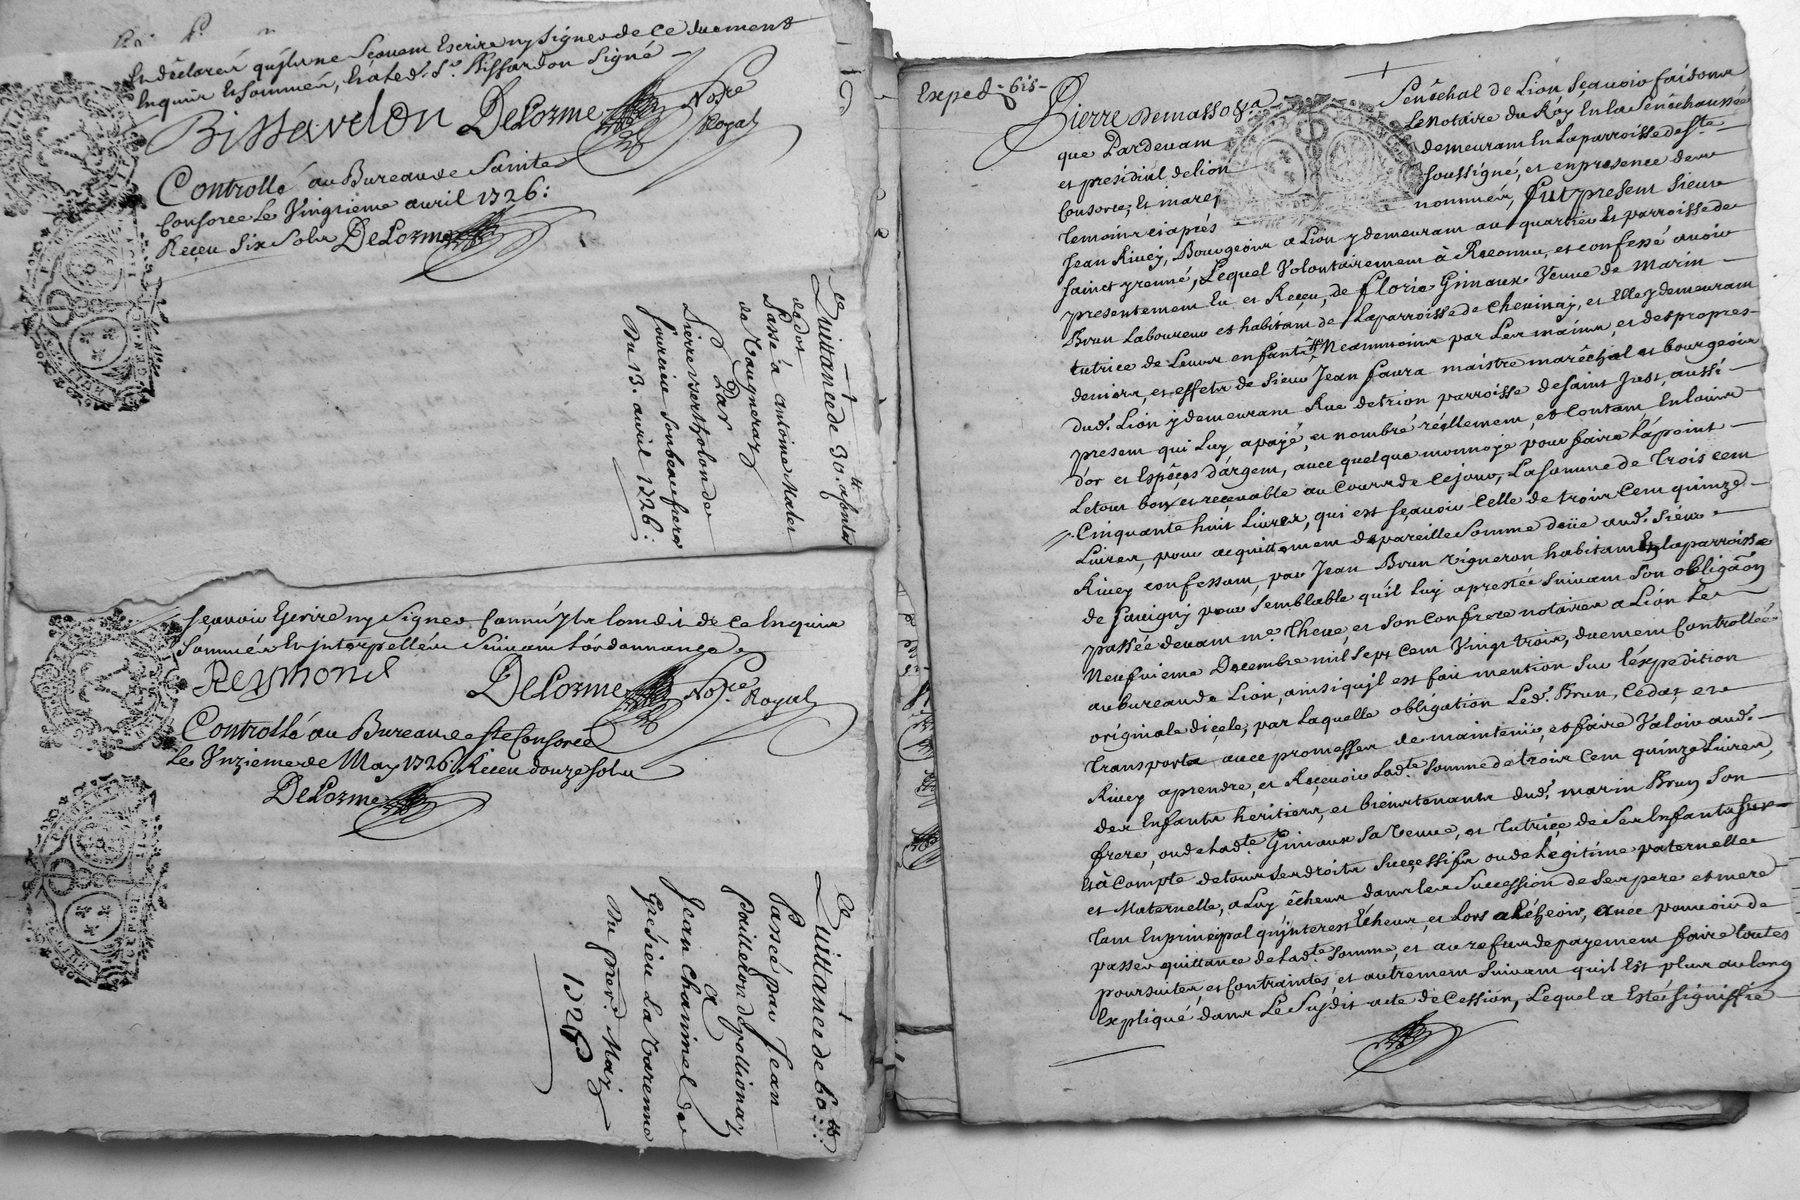 Et déclaré qu'il ne Sçavoir Escrire ny Signer de ce duement
Enquis et sommé, hated. Sr. Bissardon Signé
Bissardon DeLorme No.re Royal
Controllé au Bureau de Sainte
Consorce Le Vingtieme avril 1726:
Receu Six Sols DeLorme
Quittance de 30.tt
de dot
Passé a antoine
de Vaugneray
Par
Pierre Berthollon de
Son beau frere
Du 13. avril 1726:
Sçavoir Escrire ny Signer comm'ils l'ont dit de ce Enquis
Sommés et interpellés Suivant l'ordonnance
Reymond DeLorme No.re Royal
Controllé au Bureau de Ste Consorce
Le Unzieme de May 1726 Receu douze Sols
DeLorme
Quittance de 60.tt
Passé par Jean
Pailleton de pollionay
a
Jean Chammel de
Grésieu La Varenne
Du prer. May
1726
Exped. bis
Pierre Demasso Sénéchal de Lion Sçavoir faisons
que Pardevant Le notaire du Roy En la Sénéchaussée
et présidial de Lion demeurant En La parroisse de Ste
Consorce, Et soussigné, et en presence des
temoins ci aprés nommés, Fut present Sieur
Jean Rivey, Bourgeois a Lion y demeurant au quartier et parroisse de
Saint yrenné, Lequel Volontairement à Reconnu, et confessé avoir
presentement Eu et Reçeu, de Florie Giniaux Veuve de Marin
Brun Laboureur et habitant de La parroisse de Chevinay, et Elle y demeurant
tutrice de Leurs enfants Neammoins par Les mains, et des propres
deniers, et effets de Sieur Jean faura maistre maréchal et bourgeois
dud. Lion y demeurant Rue de trion parroisse de Saint Just, aussi
present qui Luy a payé, et nombré réellement, et Contant En Louis
d'or et Espéçes d'argent, avec quelque monnoye pour faire L'apoint
Le tout bon, et reçevable au Cours de Cejour, La Somme de Trois cent
Cinquante huit Livres, qui est Sçavoir Celle de trois Cent quinze
Livres, pour acquittement de pareille Somme deüe aud. Sieur
Rivey confessant, par Jean Brun Vigneron habitant En la parroisse
de Savigny pour Semblable qu'il Luy a prestée Suivant Son obligâon
passée devant me. Theve, et Son Confrere notaires a Lion Le
Neufvieme Decembre mil Sept Cent Vingt trois, duement Controllée
au bureau de Lion, ainsi qu'il est fait mention Sur L'éxpedition
originale d'içelle, par Laquelle obligation Led. Brun, Cedat, et
Transporta avec promesse de maintenir, et faire Valoir aud.
Rivey a prendre, et Reçevoir Lad.te Somme de trois Cent quinze Livres,
des Enfants heritiers, et bien tenants dud. marin Brun Son
frere, ou de Lad.te Giniaux Sa Veuve, et Tutriçe de Ses Enfants Sur
Et à Compte de tous Ses droits Suççessifs ou de Légitime paternelle
et Maternelle, a Luy échus dans les Succession de Ses pere et mere
Tant En principal qu'interest Echeus, et Lors a Echeoir, avec pouvoir de
passer quittance de Lad.te Somme, et au refus de payement faire toutes
poursuites et Contraintes, et autrement Suivant qu'il Est plus au Long
Expliqué dans Le Susdit acte de Cession, Lequel a Esté Signiffié